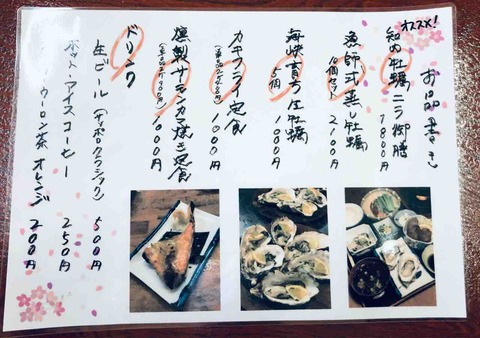 オススメ!
お品書き
知内牡蠣ニラ御膳
1800円
漁師式蒸し牡蠣
10個セット
2100円
海峡育ち生牡蠣
5個
1000円
カキフライ定食
1000円
燻製サーモンカマ焼き定食
1000円
ドリンク
生ビール(サッポロクラシック)
500円
ホット・アイスコーヒー
250円
ウーロン茶 オレンジ
200円